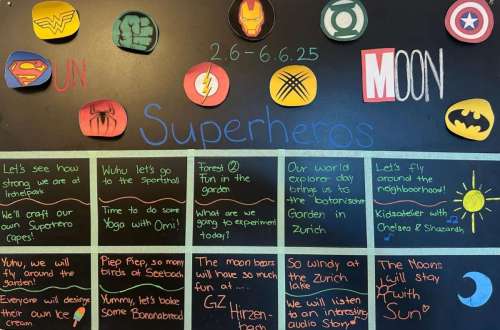 2.6 - 6.6.25
SUN
MOON
Superheros
Let's see how
strong we are at
Irchelpark
We'll craft our
own Superhero
Capes!
Wuhu let's go
to the sportshall
Time to do some
Yoga with Omi!
Forest ②
Fun in the
garden
What are we
going to experiment
today?
Our world
explorer day
brings us to
the botanischer
Garden in
Zurich
Let's fly
around the
neighborhood!
Kidsatelier with
Chelsea & Shazandh
Yuhu, we will
fly around the
garden!
Everyone will desinge
their own Ice
cream
Piep Piep, so many
birds at Seebach
Yummy, let's bake
some Bananabread
The moon bears
will have so much
fun at....
GZ
Hirzen-
bach
So windy at
the Zurich
lake
We will listen
to an interesting
audio Story
The Moons
will stay
with
Sun